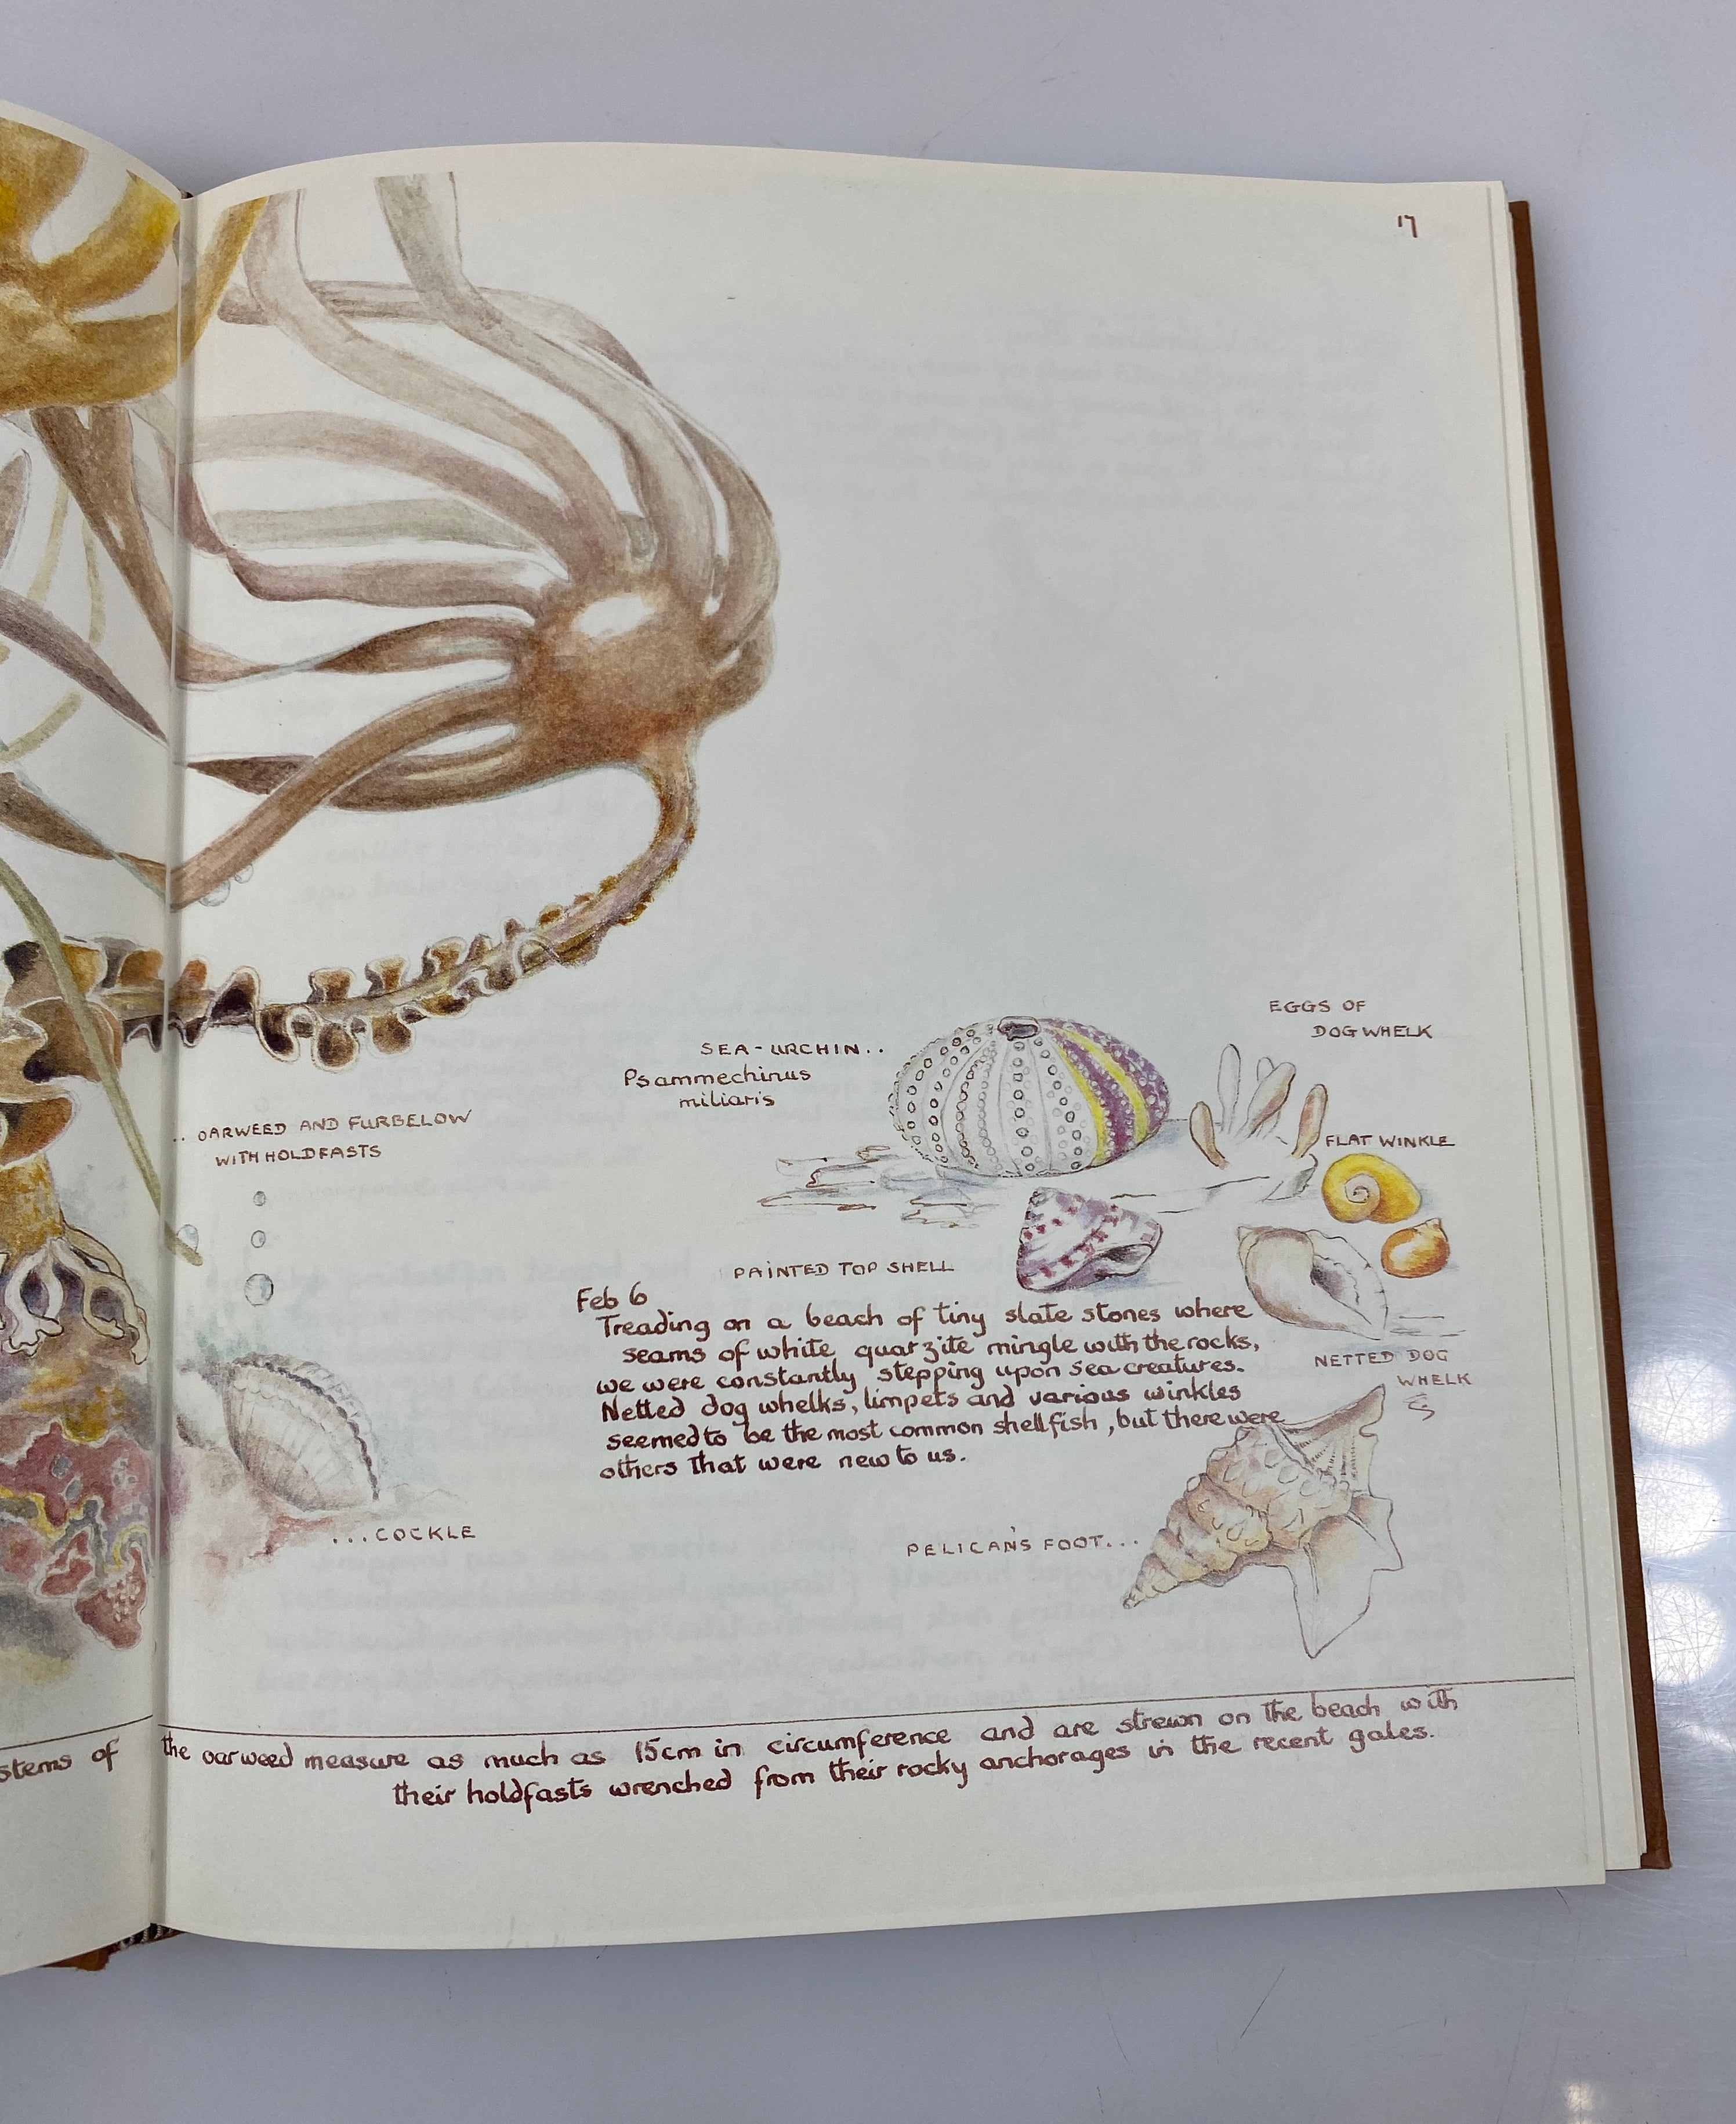 17
EGGS OF
DOG WHELK
SEA-URCHIN..
Psammechinus
miliaris
.. OARWEED AND FURBELOW
WITH HOLDFASTS
FLAT WINKLE
PAINTED TOP SHELL
Feb 6
Treading on a beach of tiny slate stones where
seams of white quarzite mingle with the rocks,
we were constantly stepping upon sea creatures.
Netted dog whelks, limpets and various winkles
seemed to be the most common shellfish, but there were
others that were new to us.
NETTED DOG
WHELK
...COCKLE
PELICAN'S FOOT...
stems of the oarweed measure as much as 15cm in circumference and are strewn on the beach with
their holdfasts wrenched from their rocky anchorages in the recent gales.